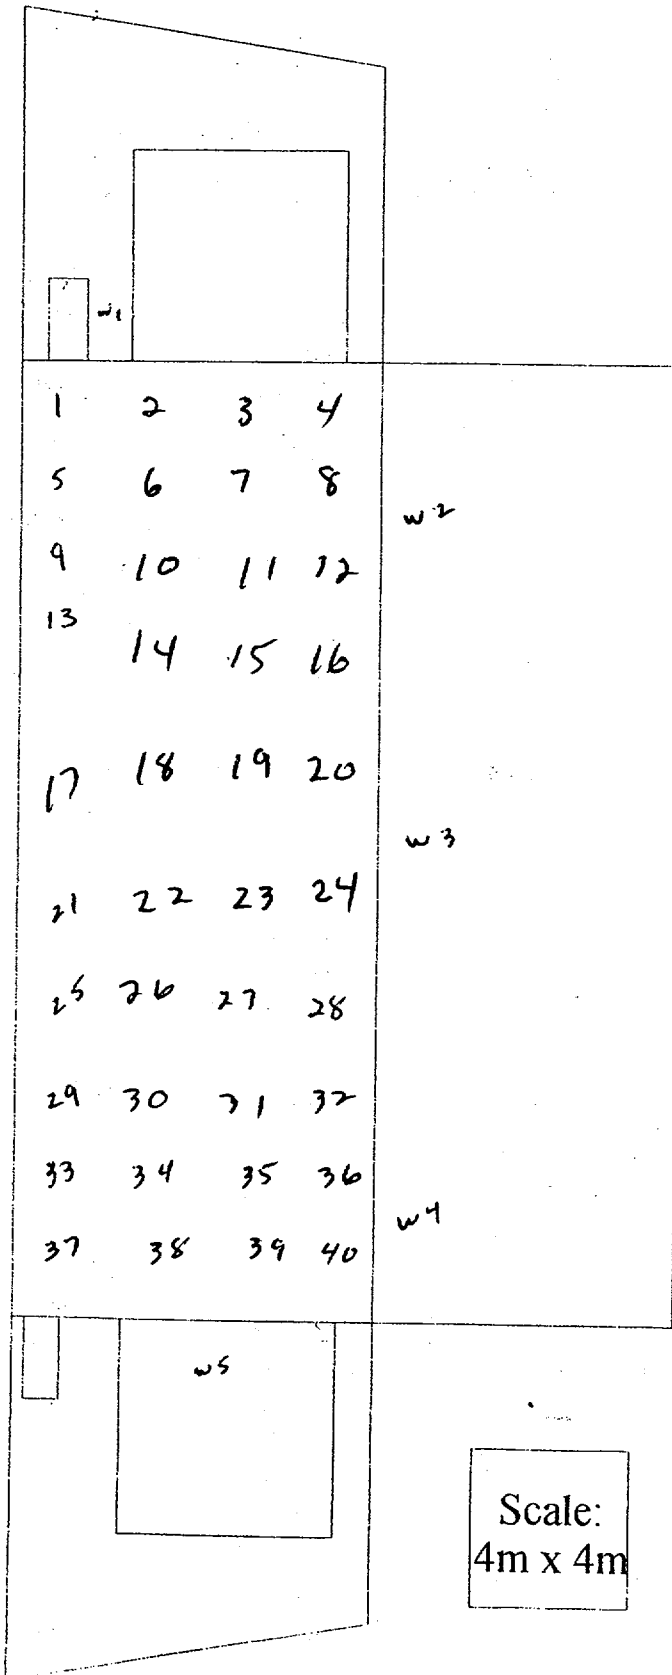 w1
1 2 3 4
5 6 7 8
w2
9 10 11 12
13
14 15 16
17 18 19 20
w3
21 22 23 24
25 26 27 28
29 30 31 32
33 34 35 36
w4
37 38 39 40
w5
Scale:
4m x 4m